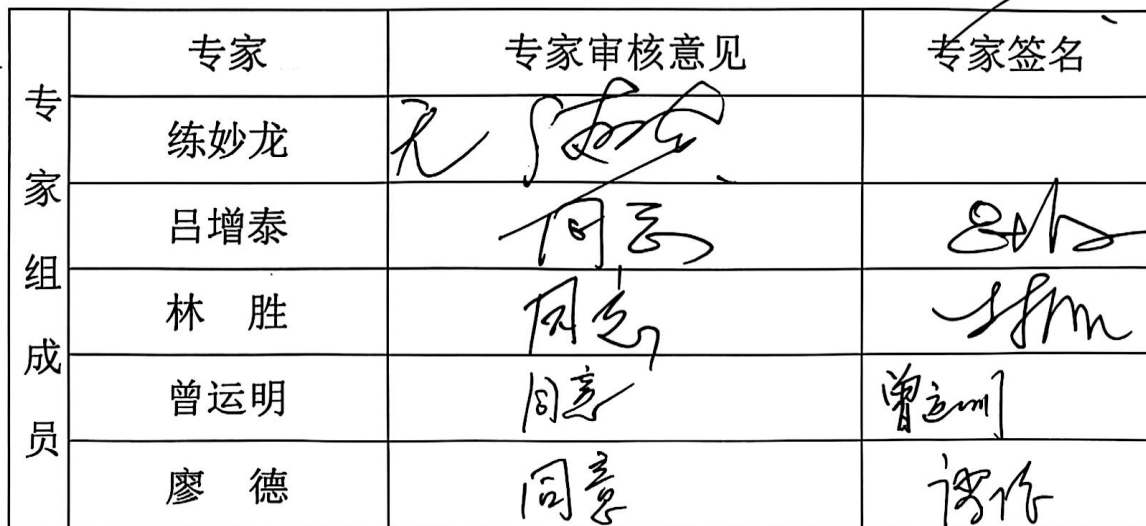 专家组成员
专家 专家审核意见 专家签名
练妙龙 无
吕增泰 同意
林 胜 同意
曾运明 同意 曾运明
廖 德 同意